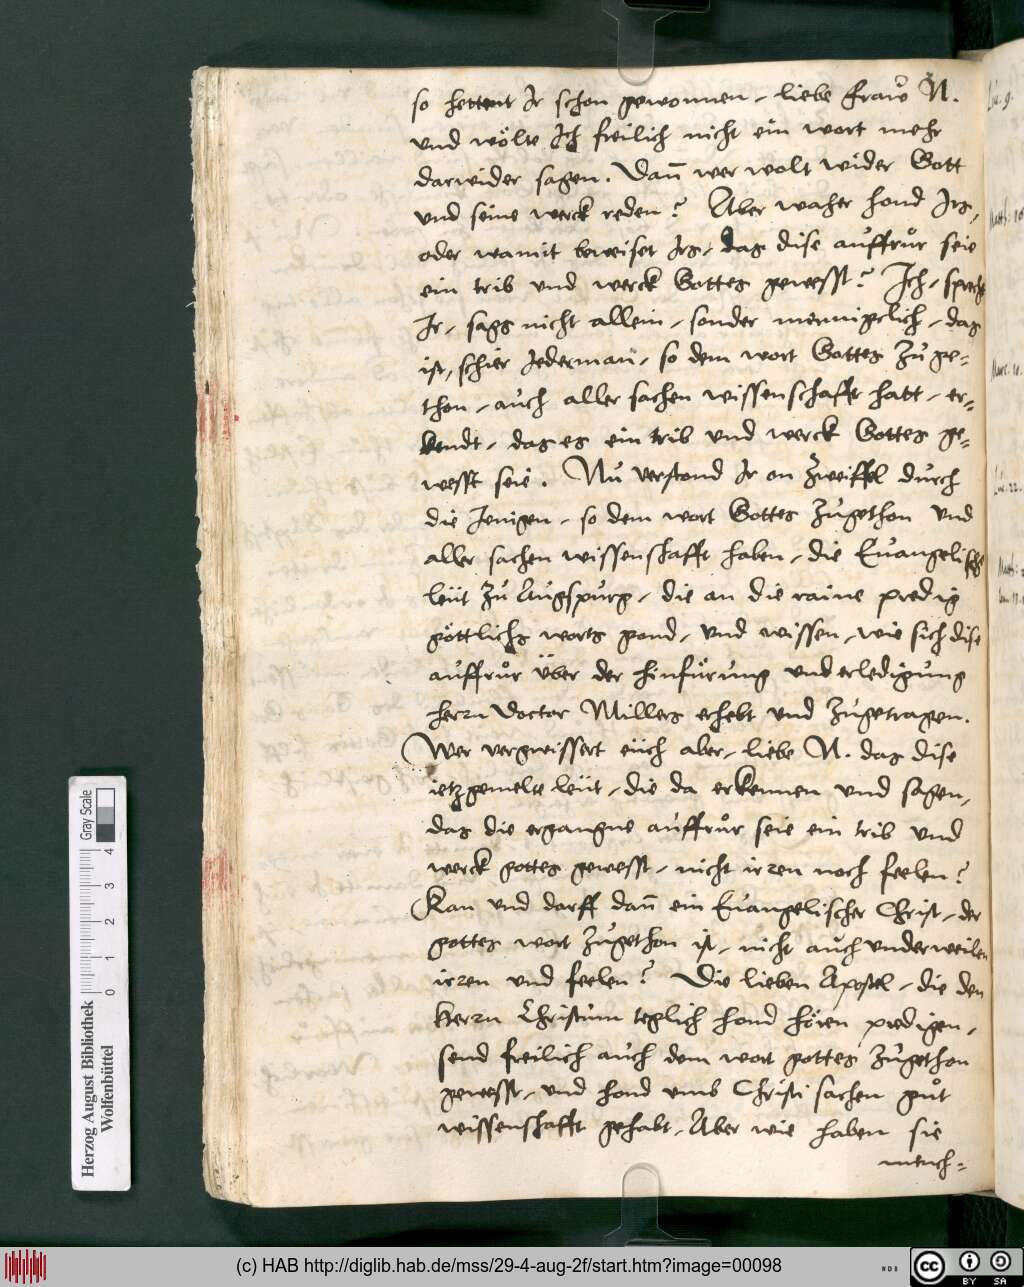 so hettent Ir schon gewonnen, liebe fraw N.
und wölte Ich freilich nicht ein wort mehr
darwider sagen. Dañ wer wolt wider Gott
und seine werck reden? Aber waher hond Irs,
oder wamit beweiset Irs, das dise auffrůr seie
ein trib und werck Gottes gewesst? Ich, sprecht
Ir, sags nicht allein, sonder mennigclich, das
ist, schier Iederman, so dem wort Gottes zů ge=
thon, auch aller sachen wissenschafft hatt, er=
kendt, das es ein trib und werck Gottes ge=
wesst seie. Nů verstond Ir on zweiffel durch
die Ienigen, so dem wort Gottes zůgethon und
aller sachen wissenschafft haben, die Euangelische
leüt zů Augspurg, die an die raine predig
göttlichs worts gond, und wissen, wie sich dise
auffrůr über der hinfůrung und erledigung
herrn Doctor Millers erhebt und zůgetragen.
Wer vergwissert eüch aber, liebe N. das dise
ietzgemelte leüt, die da erkennen und sagen,
das die ergangne auffrůr seie ein trib und
werck gottes gewesst, nicht irren noch feelen?
Kan und darff dañ ein Euangelischer Christ, der
gottes wort zůgethon ist, nicht auch underweilen
irren und feelen? Die lieben Apostel, die den
Herrn Christum teglich hond hören predigen,
send freilich auch dem wort gottes zůgethon
gewesst, und hond umb Christi sachen gůt
wissenschafft gehabt, Aber wie haben sie
mench=
Luc. 9.
Matth. 16
Marc. 10.
Luc. 22.
Matth.
Herzog August Bibliothek
Wolfenbüttel
0 1 2 3 4
Gray Scale
(c) HAB http://diglib.hab.de/mss/29-4-aug-2f/start.htm?image=00098
HAB
cc BY SA